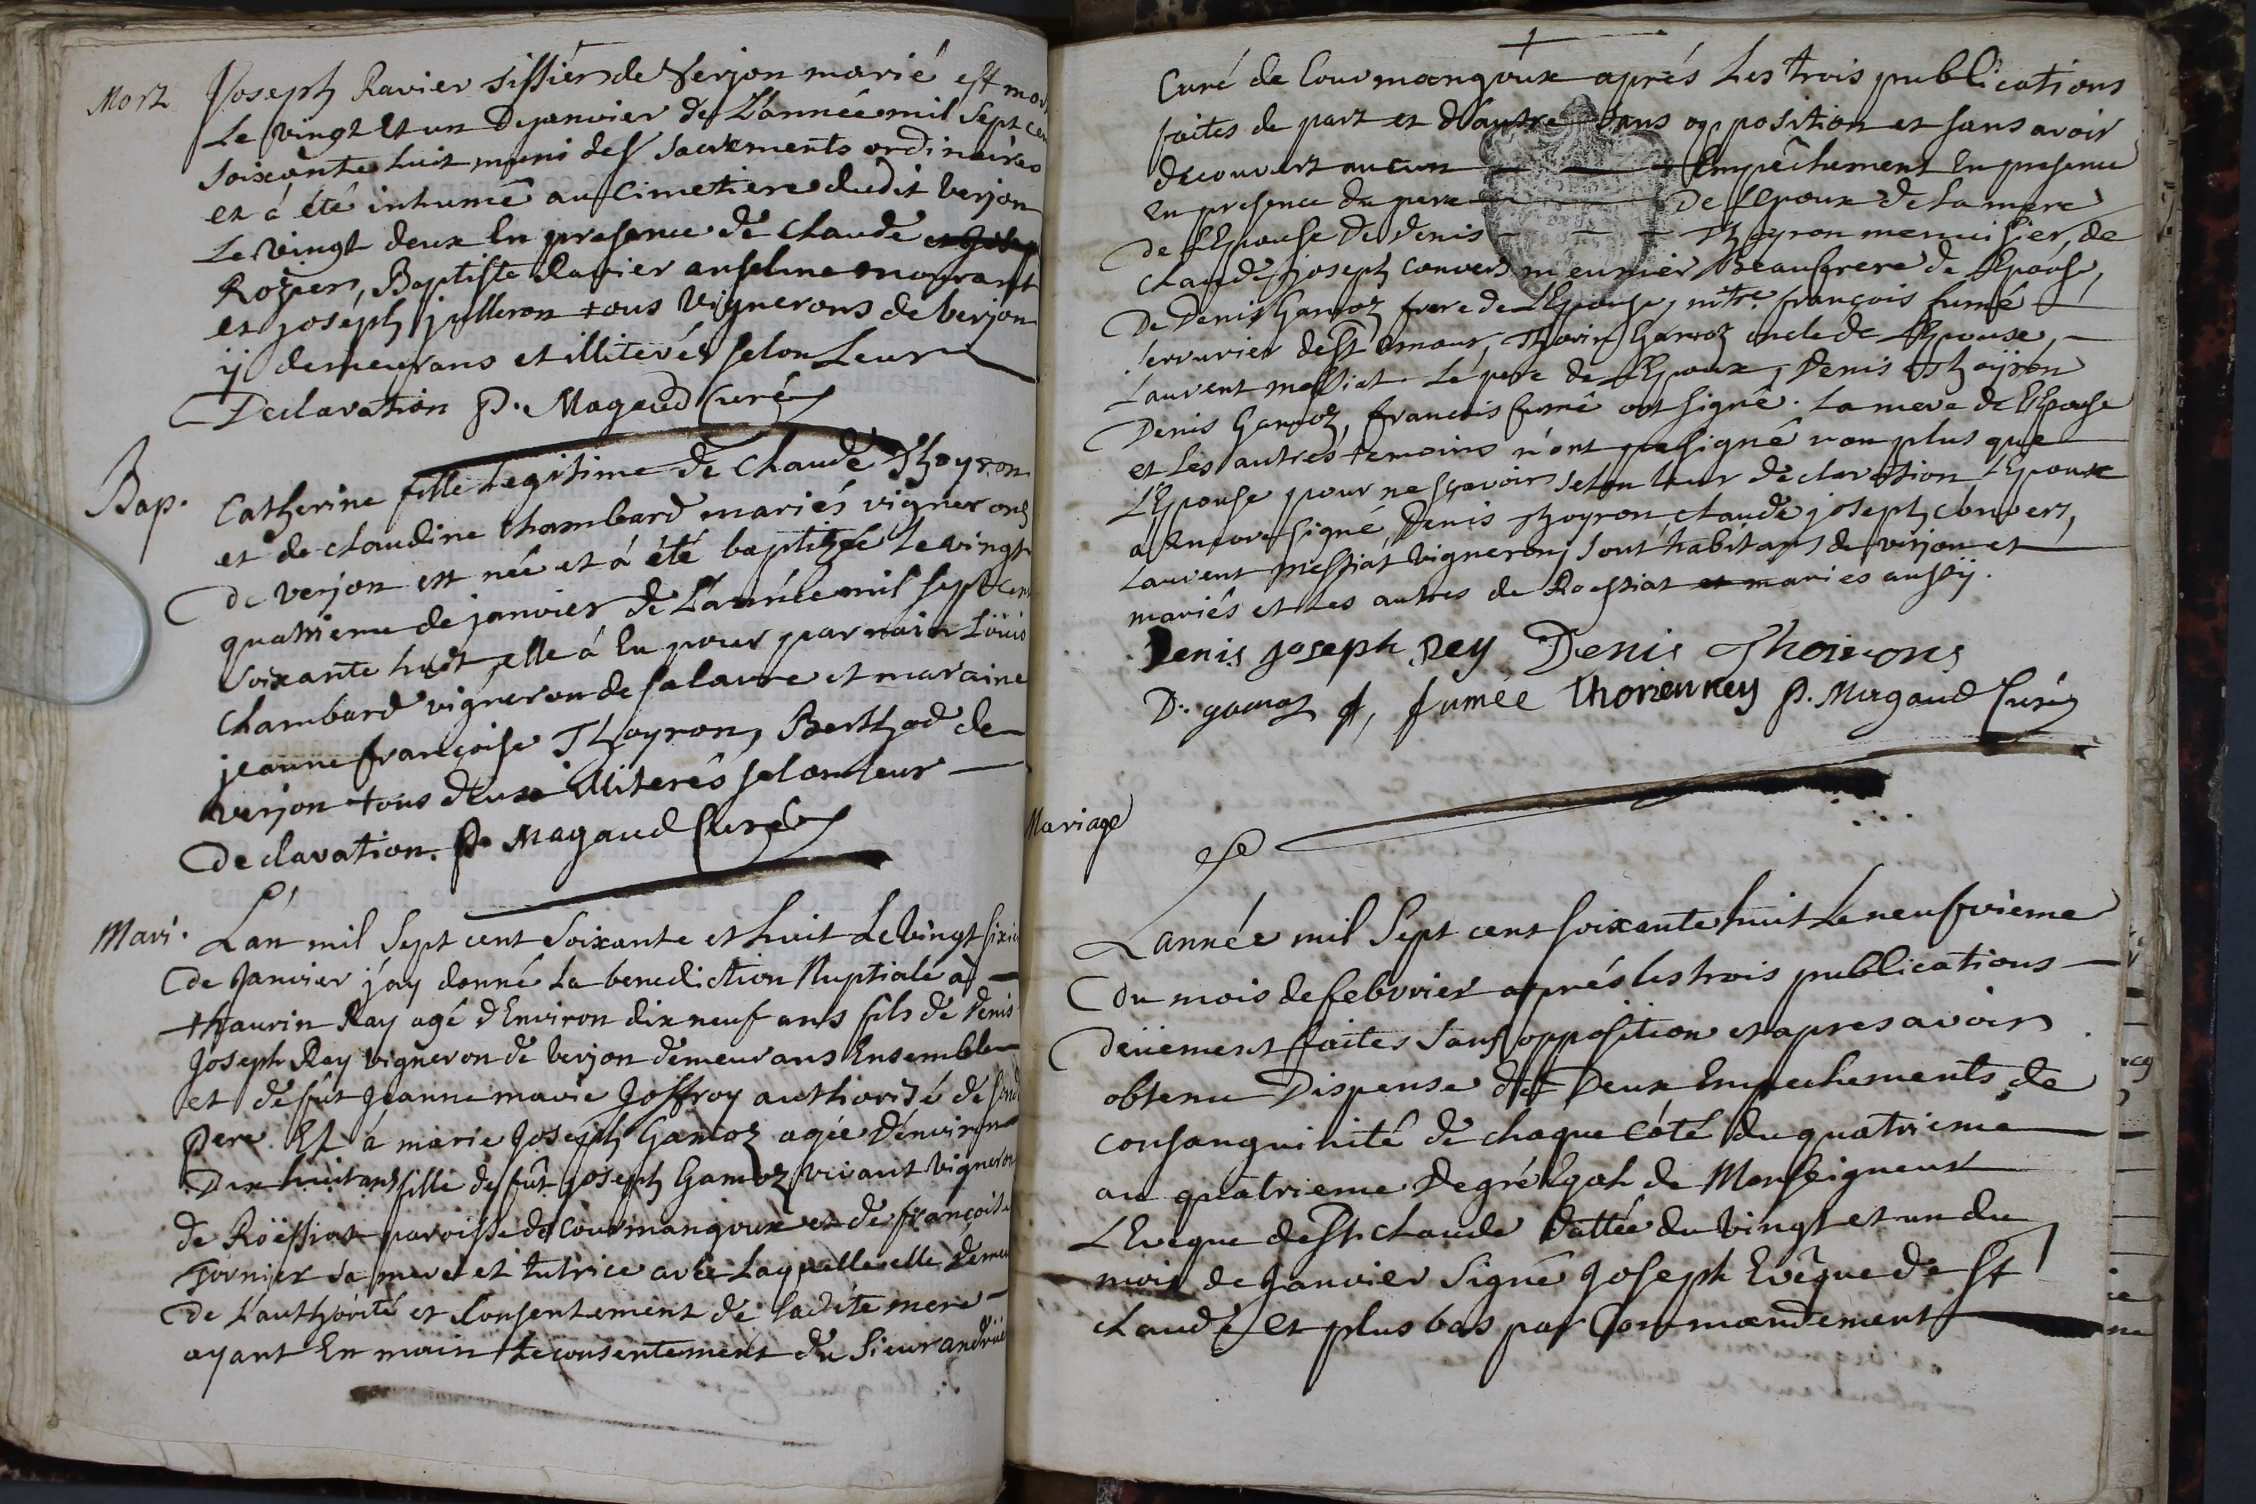 Mort
Joseph Ravier tissier de Verjon marié est mor
Le vingt et un de janvier de L'année mil sept cen
soixante huit muni des sacrements ordinaires
et á été inhumé au Cimetiere dudit verjon
Le vingt deux En presence de claude
Baptiste Ravier anselme mourant
et joseph julleron tous vignerons de verjon
ÿ demeurans et illiterés selon Leur
Declaration P. Magaud Curé
Bap.
Catherine fille Legitime de claude Thoyron
et de claudine Chambard mariés vignerons
de verjon est née et á été baptizée Le vingt
quatrieme de janvier de L'année mil sept cen
soixante huit, elle á Eu pour parrain Loüis
Chambard vigneron de salavre et maraine
jeanne françoise Thoyron, Berthod de
verjon tous deux illiterés selon leur
declaration. P. Magaud Curé
Mari.
L'an mil sept cent soixante et huit Le vingt sixie
de Janvier j'ay donné la benediction Nuptiale à
thaurin Ray agé d'Environ dix neuf ans fils de Denis
Joseph Rey vigneron de verjon demeurans Ensemble
et défût Jeanne marie Joffroy authorisé de sond
Pere Et á marie Joseph Gamoz agée d'environ
Dix huit ans fille de fût joseph Gamoz vivant vigneron
de Roissiat paroisse de Courmangoux et de françoise
Tornier sa mere et tutrice avec Laquelle elle Demeu
de L'authorité et Consentement de ladite mere
ayant En main Le consentement du Sieur andrié
Curé de Courmangoux aprés Les trois publications
faites de part et d'autre sans opposition et sans avoir
decouvert aucun Empêchement En presence
En presence du pere De L'Epoux de La mere
de L'Epouse De Denis Thoyron menuisier, de
claude joseph convers meunier Beaufrere de L'Epouse,
De Denis Gamoz frere de L'Epouse, mtre. françois fumé
serrurier de St. amour, Thorin Gamoz oncle de L'Epouse,
Laurent messiat. Le pere de L'Epoux, Denis Thoÿron
Denis Gamoz, francois fumé ont signé. La mere de L'Epouse
et Les autres temoins n'ont pas signé non plus que
L'Epouse pour ne sçavoir selon leur declaration L'Epoux
a Encore signé, Denis Thoyron, claude joseph convers,
Laurent messiat vignerons sont habitans de verjon et
mariés et Les autres de Roissiat et mariés aussÿ.
Denis joseph Rey Denis Thoirons
D. gamoz f, fumée thorien Rey P. Magaud Curé
Mariage
L'année mil Sept cent soixante huit Le neufvieme
du mois de febvrier aprés les trois publications
düement faites sans opposition et apres avoir
obtenu Dispense de Deux Empechements de
consanguinité de chaque Côté du quatrieme
au quatrieme Degré Egal de Monseigneur
L'Eveque de St. claude Dattée du vingt et un du
mois de Janvier signé Joseph Evêque de St
claude et plus bas par Commandement